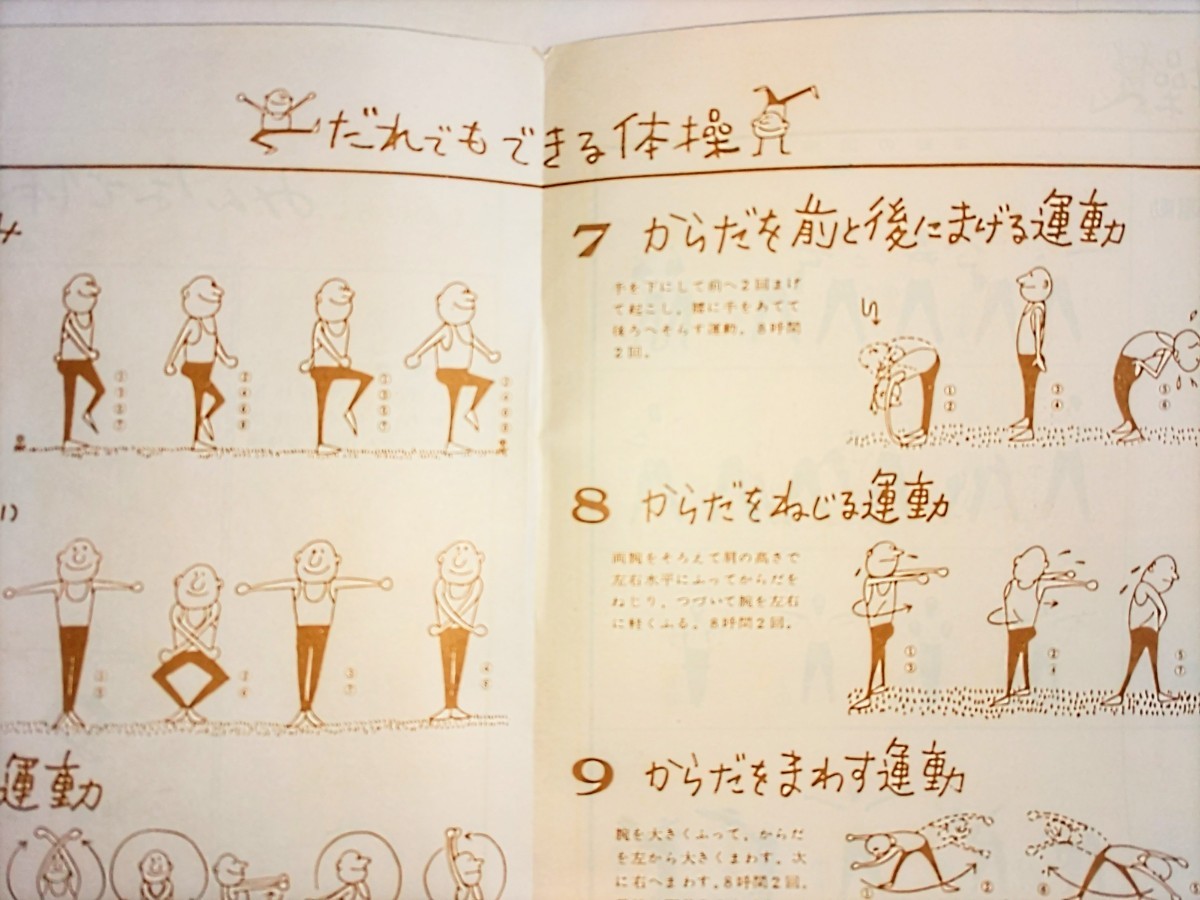 だれでもできる体操
運動
7 からだを前と後にまげる運動
手を下にして前へ2回まげ
て起こし、腰に手をあてて
後ろへそらす運動。8呼間
2回。
8 からだをねじる運動
両腕をそろえて肩の高さで
左右水平にふってからだを
ねじり、つづいて腕を左右
に軽くふる。8呼間2回。
9 からだをまわす運動
腕を大きくふって、からだ
を左から大きくまわす。次
に右へまわす。8呼間2回。